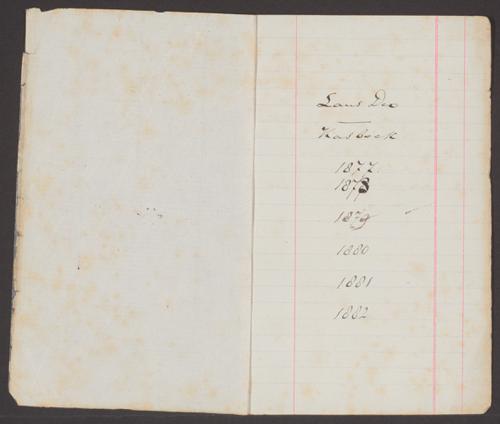 Laus Deo
Kasboek
1877
1878
1879
1880
1881
1882